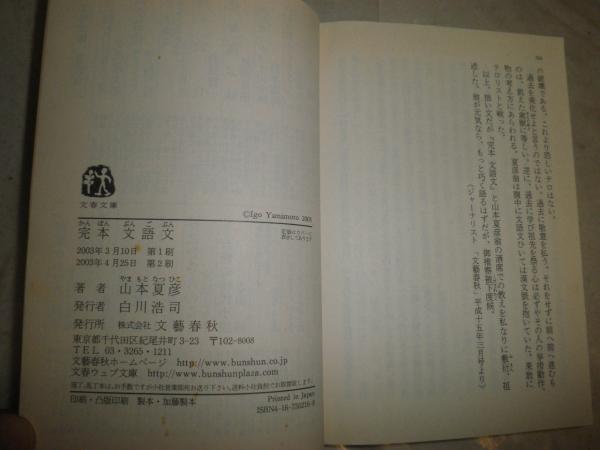 の破壊である。これより恐しいテロはない。
過去を美化せよと言うのではない。過去に敬意を払う、それをせずに前へ前へ進むも
のは、飢えた禽獣に等しい。逆に、過去に学び祖先を祭る心は必ずやその人の挙措動作、
物の考え方にあらわれる。夏彦翁は胸中に文語文ひいては漢文脈を抱いていた。果敢に
テロリストと戦った。
以上、拙い文だが『完本 文語文』と山本夏彦翁の酒席での教えを私なりに敷衍、祖
述した。翁が元気なら、もっと巧く語るはずだが、御推察被下度候。
(ジャーナリスト 「文藝春秋」平成十五年三月号より)
文春文庫
©Igo Yamamoto 2003
かん ぽん ぶん ご ぶん
完本 文語文
定価はカバーに
表示してあります
2003年3月10日 第1刷
2003年4月25日 第2刷
やま もと なつ ひこ
著 者 山本夏彦
発行者 白川浩司
発行所 株式会社 文藝春秋
東京都千代田区紀尾井町3-23 〒102-8008
TEL 03・3265・1211
文藝春秋ホームページ http://www.bunshun.co.jp
文春ウェブ文庫 http://www.bunshunplaza.com
落丁、乱丁本は、お手数ですが小社営業部宛お送り下さい。送料小社負担でお取替致します。
印刷・凸版印刷 製本・加藤製本
Printed in Japan